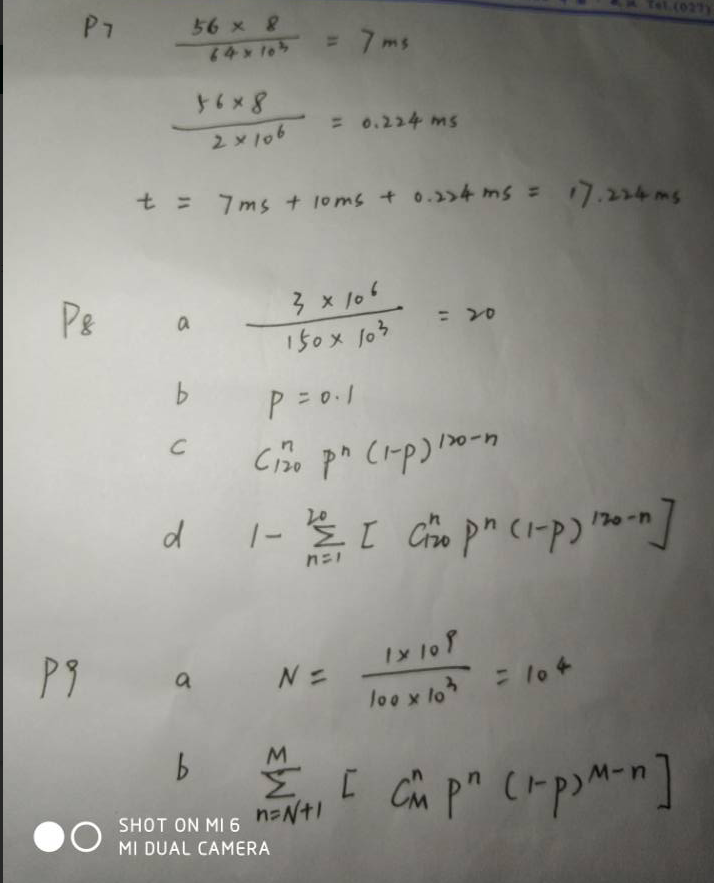 Tel.(027)
P7 56 × 8 / 64 × 10³ = 7 ms
56 × 8 / 2 × 10⁶ = 0.224 ms
t = 7ms + 10ms + 0.224 ms = 17.224 ms
P8 a 3 × 10⁶ / 150 × 10³ = 20
b p = 0.1
c C₁₂₀ⁿ pⁿ (1-p)¹²⁰⁻ⁿ
d 1 - ∑ₙ₌₁²⁰ [ C₁₂₀ⁿ pⁿ (1-p)¹²⁰⁻ⁿ ]
P9 a N = 1 × 10⁹ / 100 × 10³ = 10⁴
b ∑ₙ₌N₊₁ᴹ [ C_Mⁿ pⁿ (1-p)ᴹ⁻ⁿ ]
SHOT ON MI 6
MI DUAL CAMERA